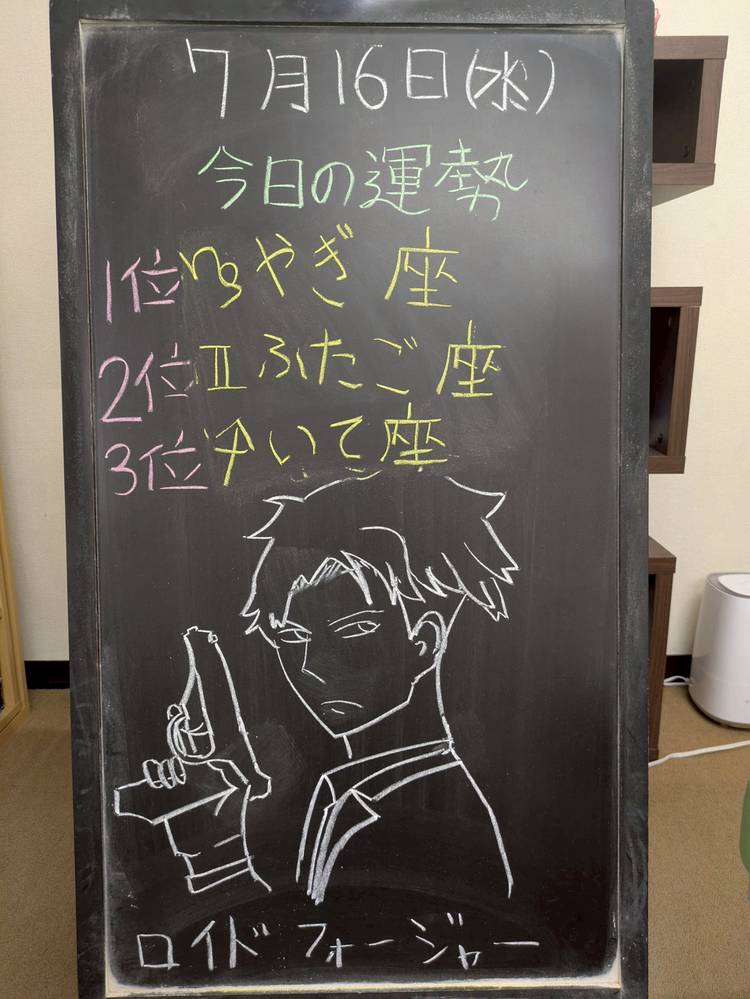 7月16日(水)
今日の運勢
1位♑やぎ座
2位♊ふたご座
3位♐いて座
ロイド フォージャー